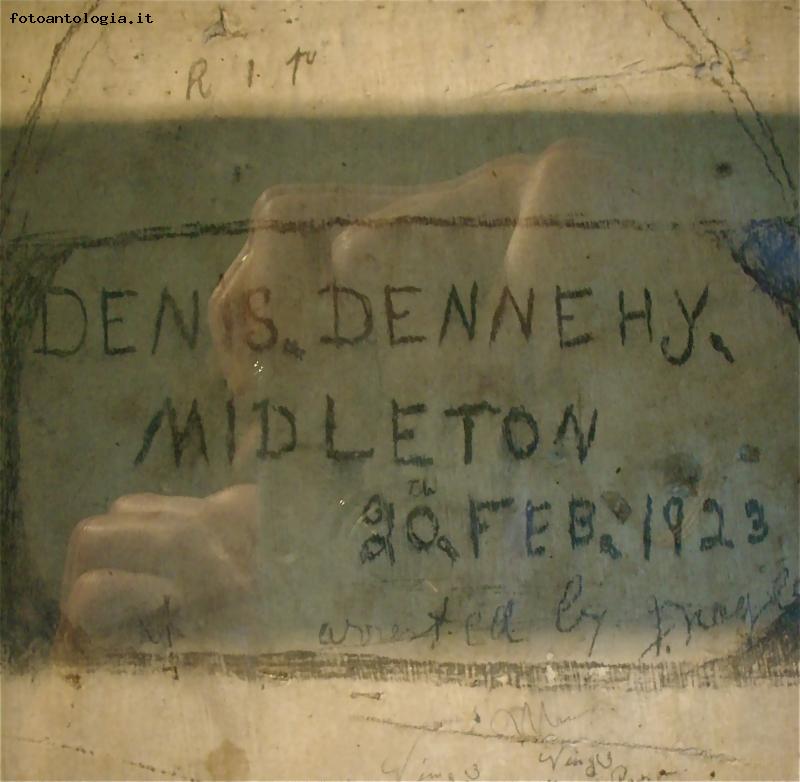 fotoantologia.it
DENIS. DENNEHY.
MIDLETON
20th. FEB. 1923
arrested by